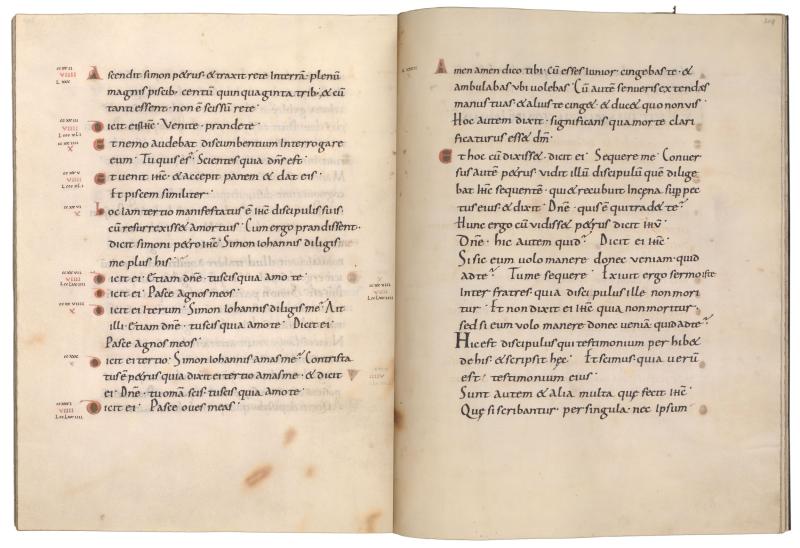 Ascendit simon petrus · & traxit rete Interrā · plenū
magnis piscib; centū quinquaginta trib; & cū
tanti essent · non ē scissū rete ·
Dicit eis ihc̄ · Venite · prandete ·
Et nemo audebat discumbentium Interrogare
eum · Tu quis es? Scientes quia dn̄s est
Et uenit ihc̄ · & accepit panem & dat eis ·
Et piscem similiter ·
hoc iam tertio manifestatus ē ihc̄ discipulis suis ·
cū resurrexiss& a mortuis · Cum ergo prandissent ·
dicit simoni p&ro ihc̄ · Simon iohannis diligis
me plus his ·
Dicit ei · Etiam dn̄e · tu scis quia amo te ·
Dicit ei · Pasce agnos meos ·
Dicit ei iterum · Simon iohannis diligis me? Ait
illi · Etiam dn̄e · tu scis quia amo te · Dicit ei
Pasce agnos meos ·
Dicit ei tertio · Simon iohannis amas me? Contrista
tus ē p&rus quia dixit ei tertio amas me · & dicit
ei · Dn̄e · tu omā scis · tu scis quia amo te ·
Dicit ei · Pasce oues meas ·
Amen amen dico tibi · Cū esses Iunior · cingebas te · &
ambulabas ubi uolebas · Cū autē senueris extendes
manus tuas · & alius te cing& · & duc& quo non uis ·
Hoc autem dixit · significans qua morte clari
ficaturus ess& dm̄ ·
Et hoc cū dixiss& · dicit ei · Sequere me · Conuer
sus autē p&rus · uidit illū discipulū quē dilige
bat ihc̄ sequentē · qui & recubuit In cena sup pec
tus eius · & dixit · Dn̄e · quis ē qui trad& te?
Hunc ergo cū uidiss& p&rus dicit ihū
Dn̄e · hic autem quid? Dicit ei ihc̄
Si sic eum uolo manere donec ueniam · quid
ad te? Tu me sequere · Exiuit ergo sermo iste
Inter fratres · quia discipulus ille non mori
tur · Et non dixit ei ihc̄ quia non moritur ·
sed si eum uolo manere donec ueniā quid ad te?
Hic est discipulus qui testimonium perhib&
de his · & scripsit hęc · Et scimus · quia uerū
est · testimonium eius ·
Sunt autem & alia multa quę fecit ihc̄ ·
Quę si scribantur · per singula · nec Ipsum